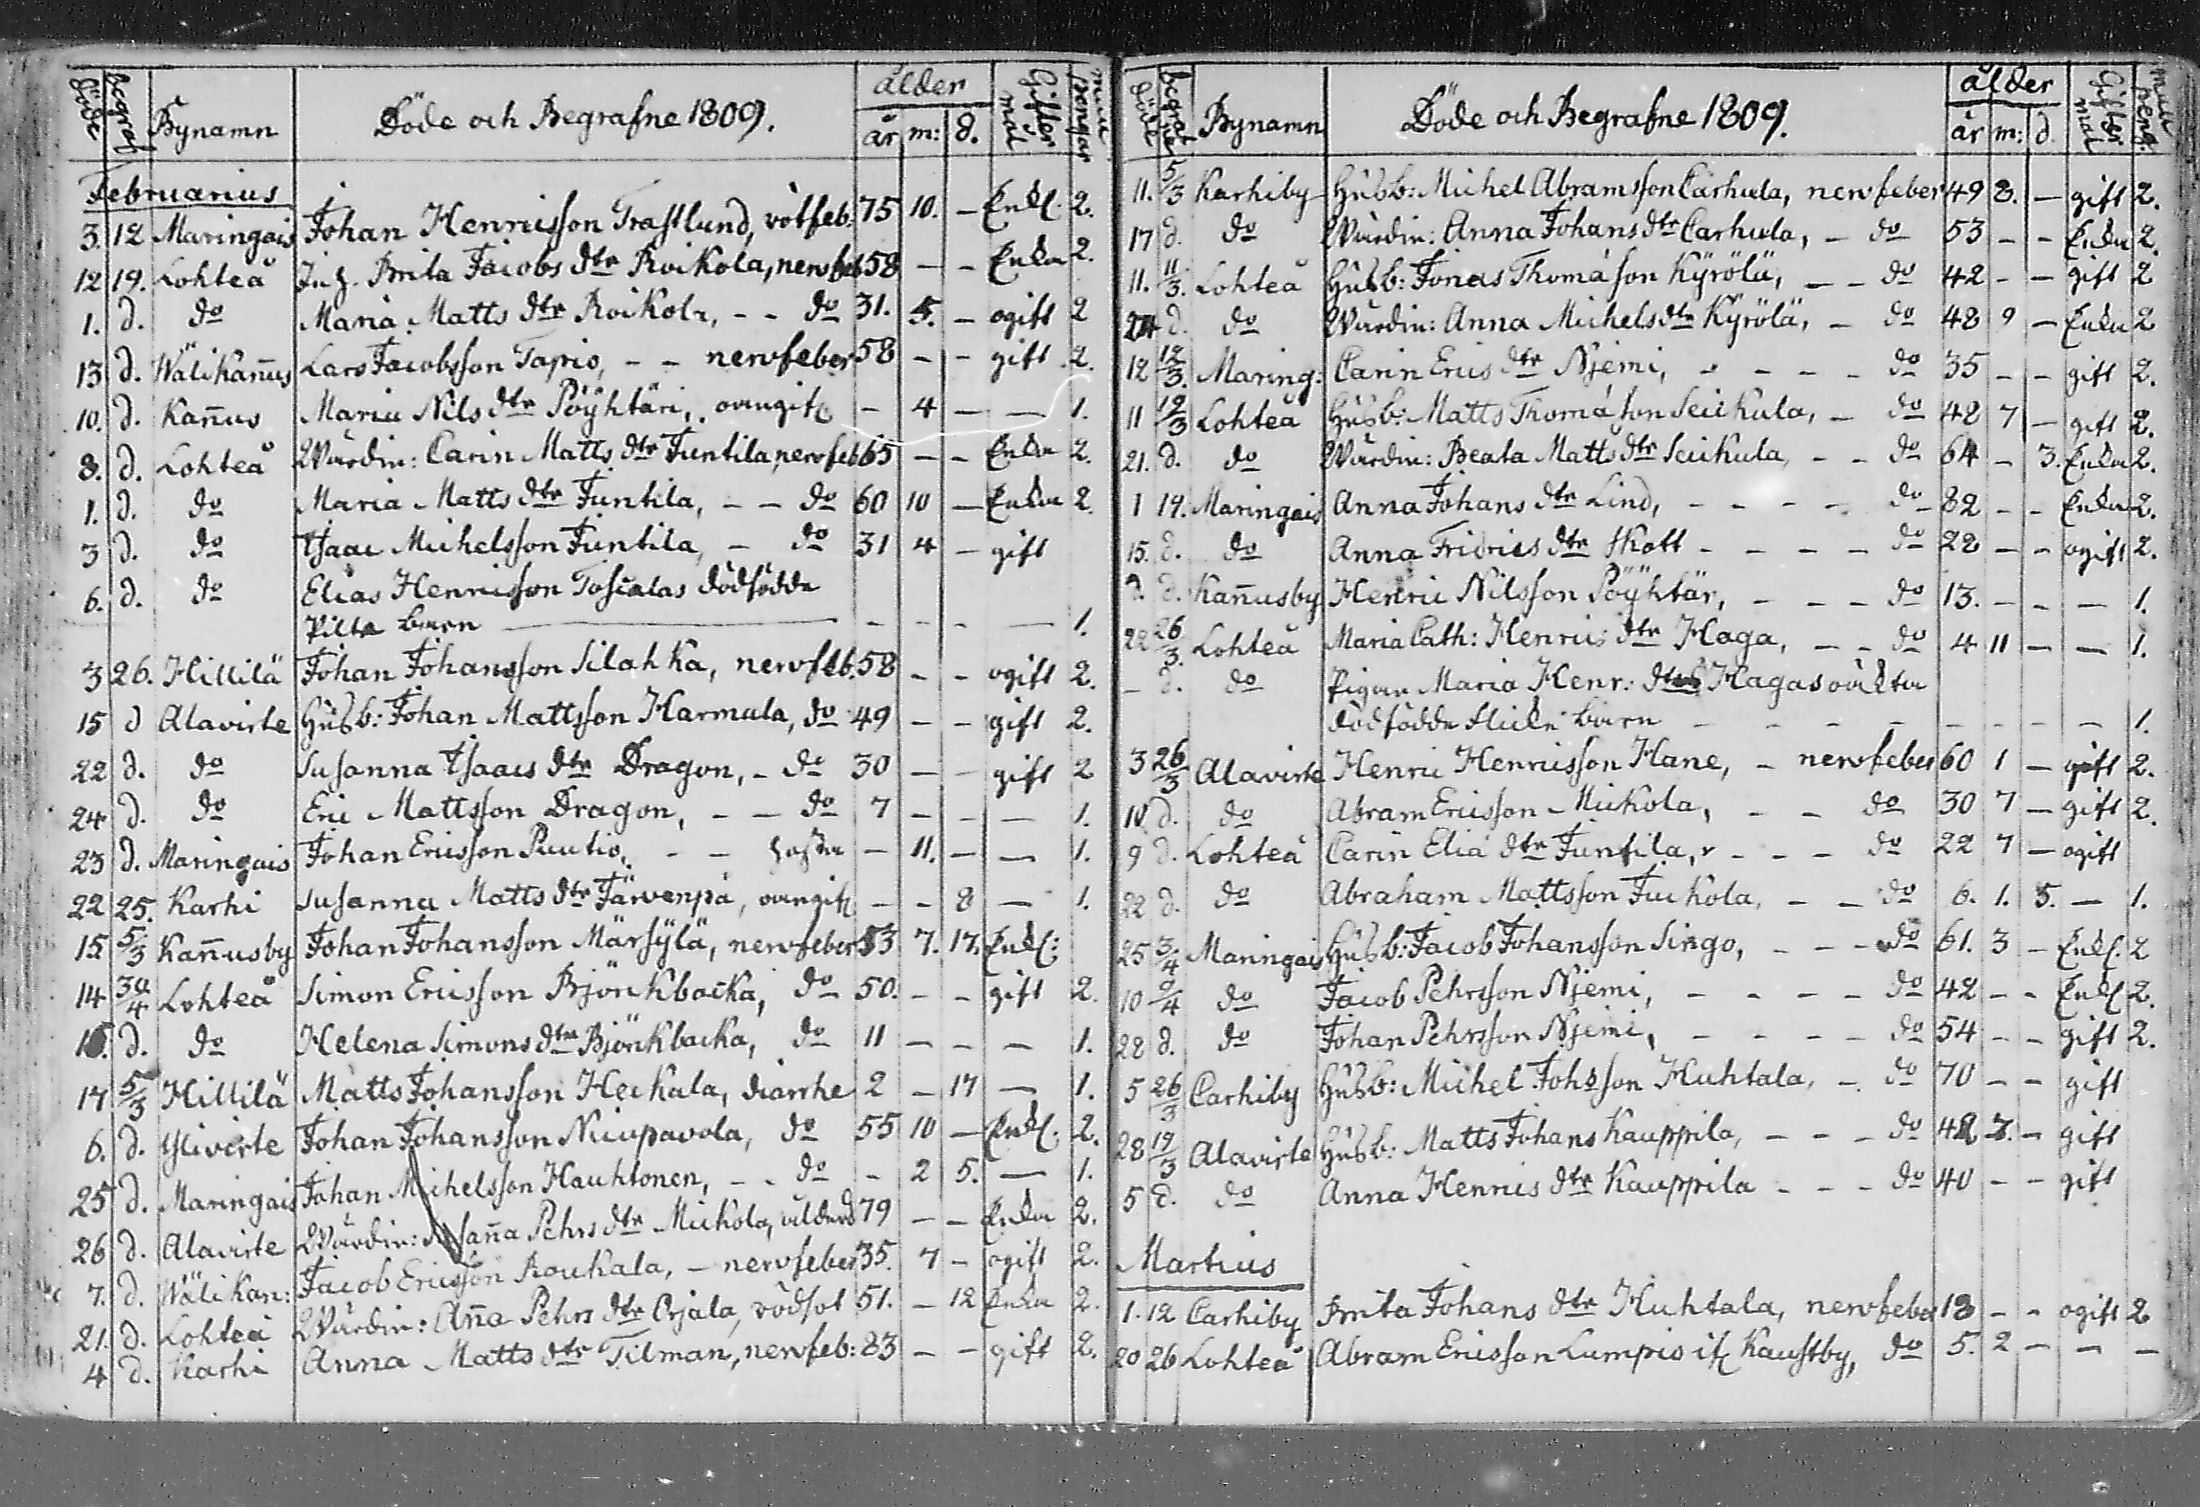 döde begraf Bynamn Döde och Begrafne 1809. ålder år m: d. Giftermål pengar
Februarius
3. 12 Maringais Johan Henricsson Trastlund, rötfeb: 75 10. — Enkl. 2.
12 19. Lohteå Inh. Brita Jacobs dtr Roikola, nervfeb 58 — — Enka 2.
1. d. do Maria Matts dtr Roikola, - - do 31. 5. — ogift 2
13 d. Wälikan̄us Lars Jacobsson Tapio, - - nervfeber 58 — — gift 2.
10. d. Kan̄us Maria Nils dtr Pöÿhtäri, — 4 — — 1.
8. d. Lohteå Wärdin: Carin Matts dtr Juntila, nervfeb 65 — — Enka 2.
1. d. do Maria Matts dtr Juntila, - - do 60 10 — Enka 2.
3 d. do Isaac Michelsson Juntila, - do 31 4 — gift
6. d. do Elias Henricsson dödfödda
Pilta barn — — — — 1.
3 26. Hillilä Johan Johansson Silahka, nervfeb. 58 - - ogift 2.
15 d Alavirte Husb: Johan Mattsson Harmula, do 49 — — gift 2.
22 d. do Susanna Isaacs dtr Dragon, - do 30 — — gift 2
24 d. do Eric Mattsson Dragon, - - do 7 — — — 1.
23 d. Maringais Johan Ericsson Puutio, - - hosta — 11. — — 1.
22 25. Karhi Susanna Matts dtr Järvenpä, — - 8 — 1.
15 5/3 Kan̄usby Johan Johansson Märsÿlä, nervfeber 53 7. 17. Enkl:
14 30/4 Lohteå Simon Ericsson Björckbacka, do 50. - - gift 2.
16. d. do Helena Simons dtr Björkbacka, do 11 — — — 1.
17 5/3 Hillilä Matts Johansson Heikala, diarrhe 2 — 17 — 1.
6. d. Yliverte Johan Johansson Niicupavola, do 55 10 — Enkl. 2.
25 d. Maringais Johan Michelsson Hauhtonen, - - do - 2 5. — 1.
26 d. Alavirte Wärdin: Pehrs dtr Mickola, ålderd 79 — — Enka 2.
7. d. Wälikan: Jacob Ericsson Roukala, - nervfeber 35. 7 — ogift 2.
21. d. Lohteå Wärdin: An̄a Pehrs dtr Orjala, rödsot 51. — 12 Enka 2.
4 d. Karhi Anna Matts dtr Tilman, nervfeb: 83 — — gift 2.
döde begrafne Bynamn Döde och Begrafne 1809. ålder år m: d. Giftermål peng.
11. 5/3 Karhiby Husb: Michel Abramsson Carhula, nervfeber 49 8. — gift 2.
17 d. do Wärdin: Anna Johans dtr Carhula, - do 53 - - Enka 2.
11. 11/3. Lohteå Husb: Jonas Thomásson Kÿrölä, - - do 42 - - gift 2
24 d. do Wärdin: Anna Michels dtr Kÿrölä, - do 48 9 — Enka 2
12 12/3. Maring: Carin Erics dtr Njemi, - - - - do 35 — — gift 2.
11 19/3 Lohteå Husb: Matts Thomásson Seikula, - do 42 7 — gift 2.
21. d. do Wärdin: Beata Matts dtr Seikula, - - do 64 — 3. Enka 2.
1 19. Maringais Anna Johans dtr Lind, - - - - do 82 - - Enka 2.
15. d. do Anna Fridrics dtr Skott - - - - do 22 — — ogift 2.
d. d. Kan̄usby Henric Nilsson Pöÿhtär, - - - do 13. — — — 1.
22 26/3. Lohteå Maria Cath: Henrics dtr Haga, - - do 4 11 — — 1.
- d. do Pigan Maria Henr: dtrs Hagas oäkta
dödfödda flicke barn - - - - - - - — 1.
3 26/3 Alavirte Henric Henricsson Hane, - nervfeber 60 1 — gift 2.
10 d. do Abram Ericsson Mickola, - - do 30 7 — gift 2.
9 d. Lohteå Carin Elia dtr Juntila, - - - do 22 7 — ogift
22 d. do Abraham Mattsson Juckola, - - do 6. 1. 5. — 1.
25 3/4 Maringais Husb: Jacob Johansson Singo, - - - do 61. 3 — Enkl. 2
10 9/4 do Jacob Pehrsson Njemi, - - - - do 42 - - Enkl 2.
28 d. do Johan Pehrsson Njemi, - - - - do 54 - - gift 2.
5 26/3 Carhiby Husb: Michel Johsson Huhtala, - do 70 - - gift
28 19/3 Alavirte Husb: Matts Johans Kauppila, - - - do 42 7. - gift
5 d. do Anna Henrics dtr Kauppila - - - do 40 - - gift
Martius
1. 12 Carhiby Brita Johans dtr Huhtala, nervfeber 18 - - ogift 2
20 26 Lohteå Abram Ericsson Lumpio if Kaustby, do 5. 2 — — —